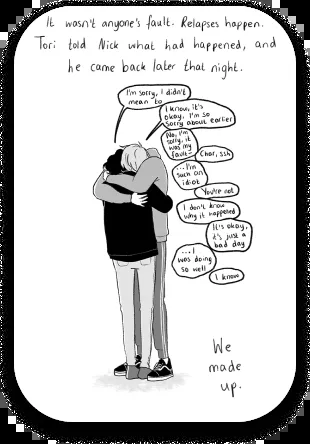 It wasn't anyone's fault. Relapses happen.
Tori told Nick what had happened, and
he came back later that night.
I'm sorry, I didn't
mean to
I know, it's
okay. I'm so
sorry about earlier
No, I'm
sorry, it
was my
fault-
Char, ssh
...I'm
such an
idiot
You're not
I don't know
why it happened
It's okay,
it's just a
bad day
...I
was doing
so well
I know
We
made
up.